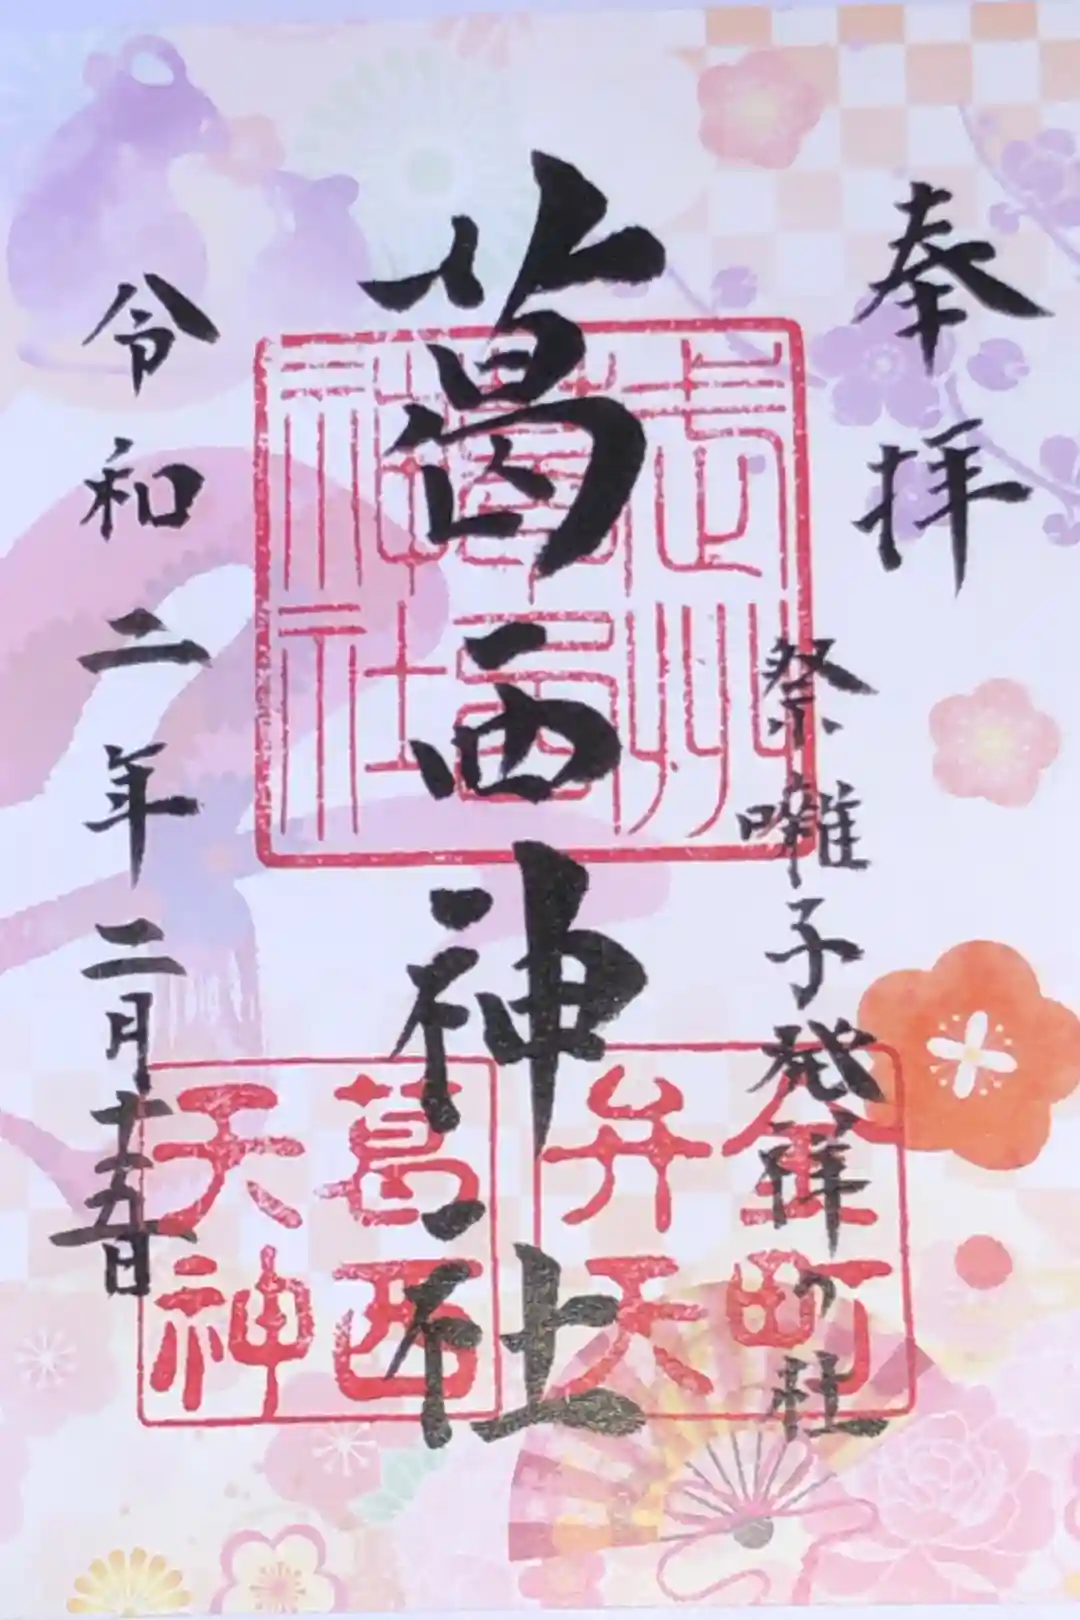 奉拝
祭囃子発祥の社
葛西神社
武州
葛西
神社
金町
弁天
葛西
天神
令和二年二月十五日